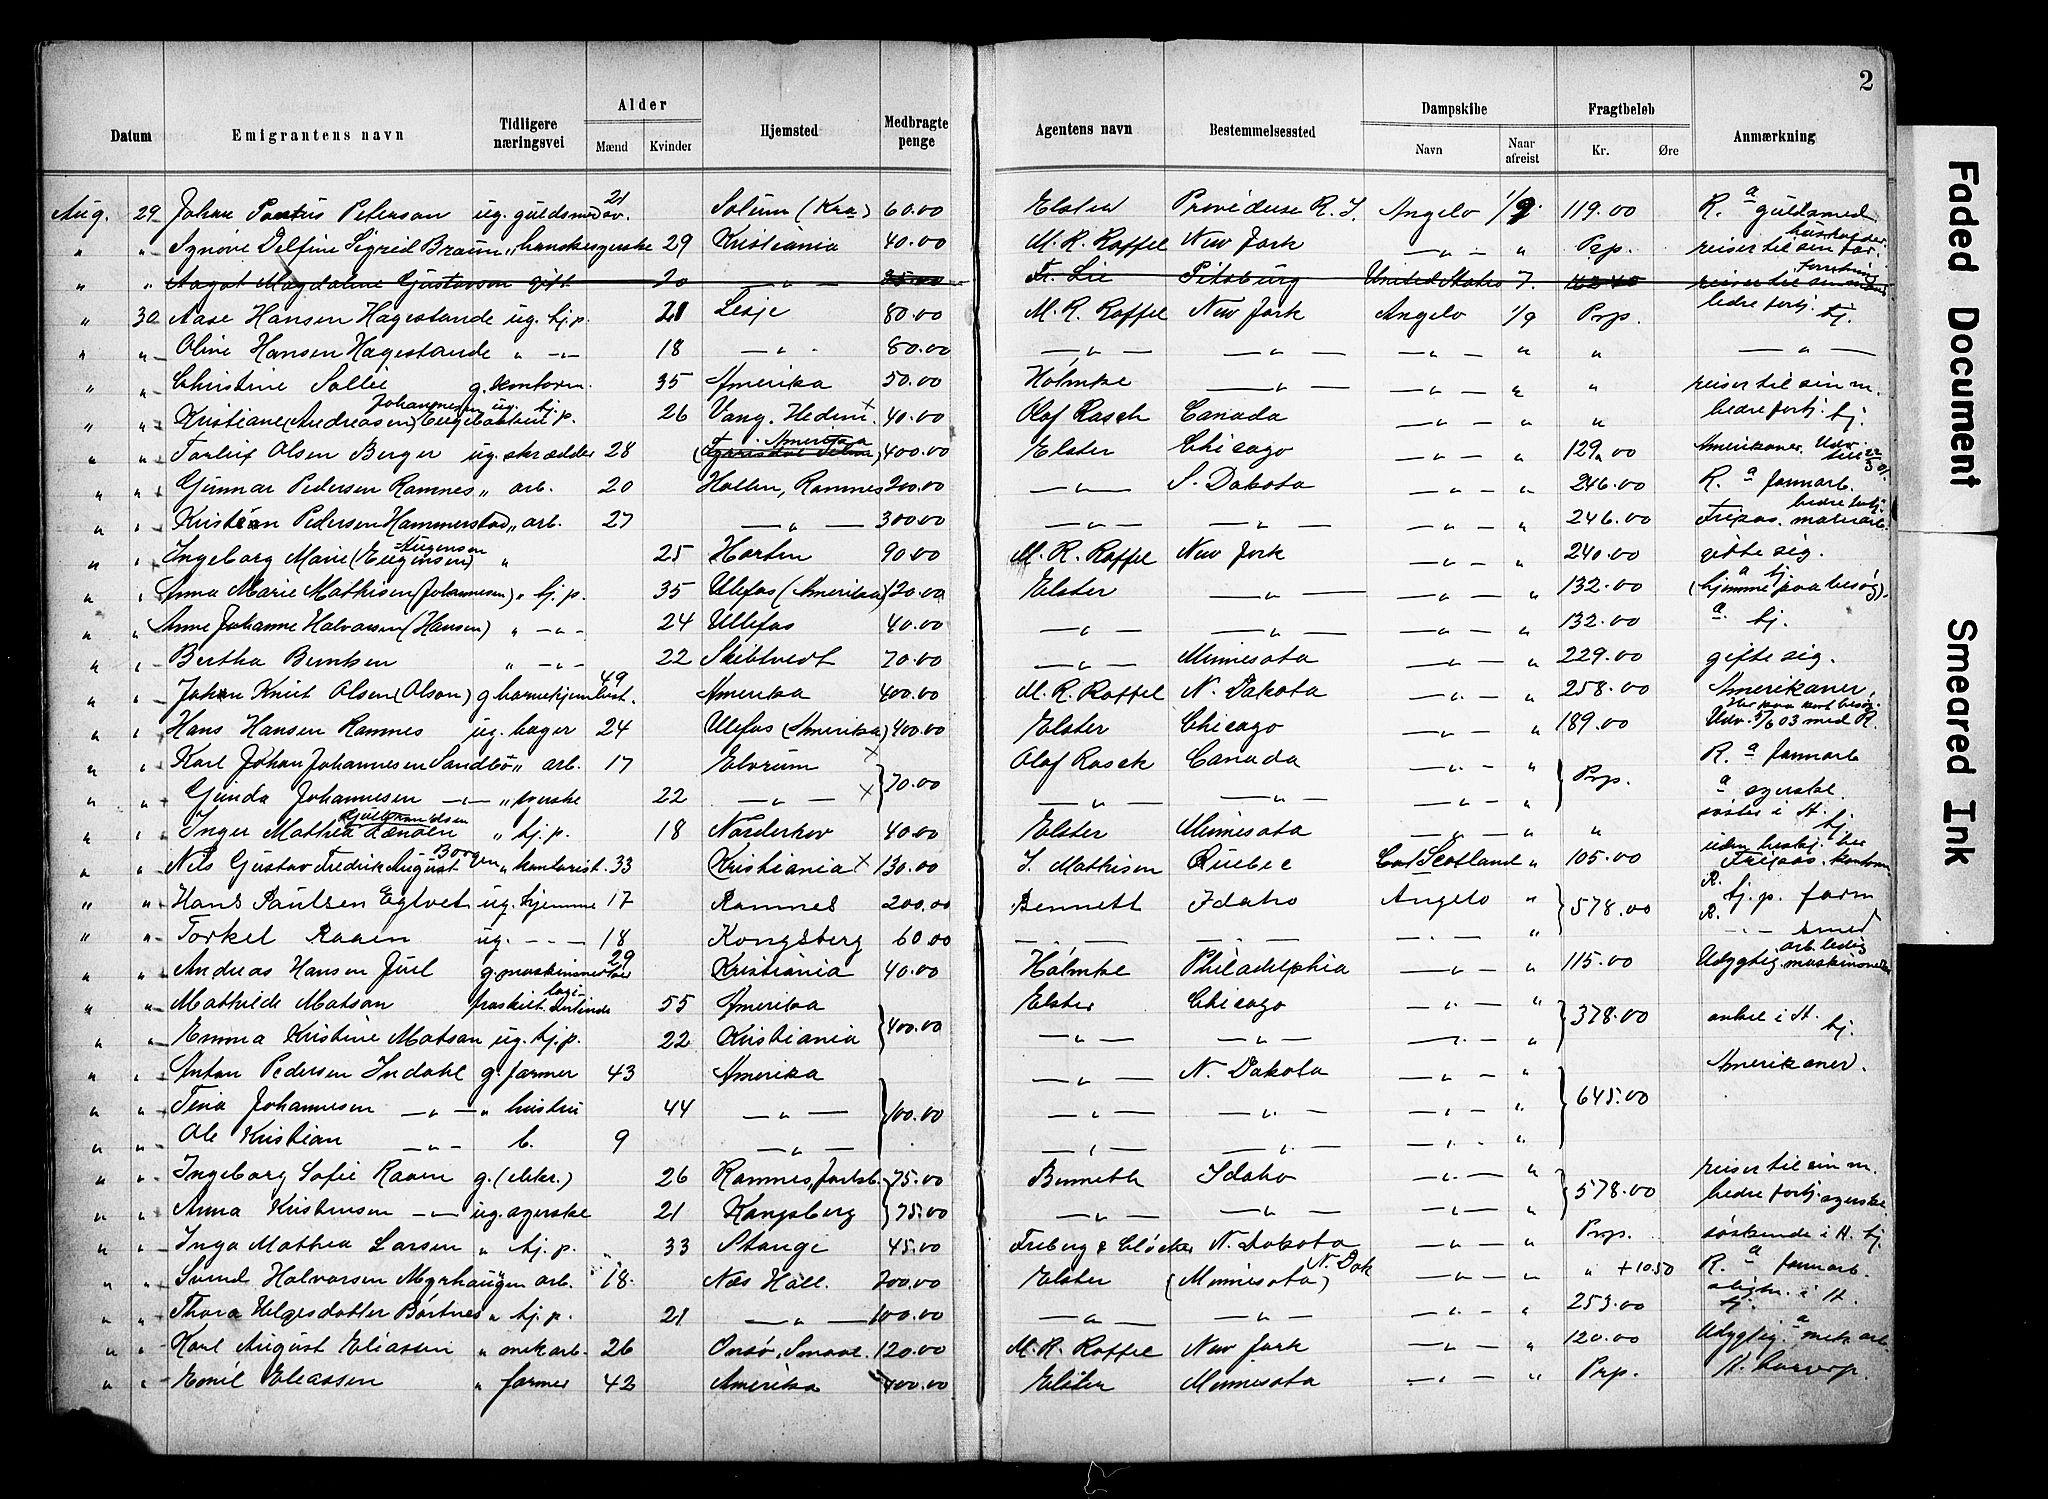 2
Datum Emigrantens navn Tidligere næringsvei Alder Mænd Kvinder Hjemsted Medbragte penge Agentens navn Bestemmelsessted Dampskibe Navn Naar afreist Fragtbeløb Kr. Øre Anmærkning
Aug. 29 Johan Pontus Peterson ug. guldsmedsv. 21 Solum (Kra) 60.00 Elster Providense R. I. Angelo 1/9 119.00 R. a guldsmed
" " Agnove Delfine Sigrid Braun " hanskesyerske 29 Kristiania 40.00 M. R. Roffel New York — " — " Prp. reiser til sin far.
" " Aagot Magdaline Gustavson gift 20 — " — 35.00 Fr. Lie Pitsburg United States 7.
" 30 Aase Hansen Hagestande ug. tj.p. 21 Lesje 80.00 M. R. Roffel New York Angelo 1/9 Prp. bedre fortj. tj.
" " Oline Hansen Hagestande " — " — 18 — " — 80.00 — " — — " — — " — " " — " —
" " Christine Sollie g. kontorm. 35 Amerika 50.00 Holmke — " — — " — " " reiser til sin m.
" " Kristiane (Andreasen) Johannesen ug. tj. p. 26 Vang. Hedem. × 40.00 Olaf Rasch Canada — " — " " bedre fortj. tj.
" " Torleif Olsen Berger ug. skrædder 28 Amerika 400.00 Elster Chicago — " — " 129.00 Amerikaner. Udv.
" " Gunnar Pedersen Ramnes " arb. 20 Hollen, Ramnes 200.00 — " — S. Dakota — " — " 246.00 R. a farmarb.
" " Kristian Pedersen Hammerstad " arb. 27 — " — 300.00 — " — — " — — " — " 246.00 Fripas. bedre fortj.
" " Ingeborg Marie (Eugensen) " 25 Horten 90.00 M. R. Roffel New York — " — " 240.00 gifte sig.
" " Anna Marie Mathisen (Johannesen) " tj. p. 35 Ulefos (Amerika) 120.00 Elster — " — — " — " 132.00 a tj. (hjemme paa besøg).
" " Anne Johanne Halvorsen (Hansen) " — " — 24 Ullefos 40.00 — " — — " — — " — " 132.00 a. tj.
" " Bertha Berntsen " — " — 22 Skibtvedt 70.00 — " — Minnesota — " — " 229.00 gifte sig.
" " Johan Knut Olsen (Olson) g. 49 Amerika 400.00 M. R. Roffel N. Dakota — " — " 258.00 Amerikaner, Her paa kort besøg.
" " Hans Hansen Ramnes ug. bager 24 Ulefos (Amerika) 400.00 Elster Chicago — " — " 189.00 Udv. 5/6 03 med R.
" " Karl Johan Johannesen Sandbo " arb. 17 Elvrum × } 70.00 Olaf Rasch Canada — " — " } Prp. R. a farmarb
" " Gunda Johannesen — " — " syerske 22 — " — × — " — — " — — " — " a syerske.
" " Inger Mathea " tj. p. 18 Norderhov 40.00 Elster Minnesota — " — " " søster i A. tj
" " Nils Gustav Fredrik August Borgen " kontorist. 33 Kristiania × 130.00 J. Mathisen Quebec Scotland " 105.00 Fripas. kontorm
" " Hans Paulsen Egtvet ug. hjemme 17 Ramnes 200.00 Bennett Idaho Angelo " } 578.00 R. tj. p. farm
" " Torkel Raaen ug. - - - 18 Kongsberg 60.00 — " — — " — — " — " R. — " — smed
" " Andreas Hansen Juel g. 29 Kristiania 40.00 Holmke Philadelphia — " — " 115.00 Udygtig. arb. ledig
" " Mathilde Matson 55 Amerika } 400.00 Elster Chicago — " — " } 378.00
" " Emma Kristine Matson ug. tj. p. 22 Kristiania — " — — " — — " — " onkel i A. tj.
" " Anton Pedersen Indahl g. farmer 43 Amerika } 100.00 — " — N. Dakota — " — " } 645.00 Amerikaner.
" " Tina Johannesen — " — " hustru 44 — " — — " — — " — — " — "
" " Ole Kristian — " — b. 9 — " — — " — — " — — " — "
" " Ingeborg Sofie Raaen g. 26 Ramnes, Jarlsb. } 75.00 Bennett Idaho — " — " } 578.00 reiser til sin m.
" " Anna Kristensen — " — ug. syerske 21 Kongsberg } 75.00 — " — — " — — " — " bedre fortj. syerske.
" " Inga Mathea Larsen " tj. p. 33 Stange 45.00 Friberg & Cløcker N. Dakota — " — " Prp. søskende i A. tj.
" " Svend Halvorsen Myrhaugen arb. 18. Næs Hall. 200.00 Elster (Minnesota) N. Dak — " — " " + 10.50 R. a farmarb.
" " Thora Helgesdatter Børtnes " tj. p. 21 — " — 100.00 — " — — " — — " — " 253.00 slægtn. i A. tj.
" " Karl August Eliassen " mek arb. 26 Onsø, Smaal. 120.00 M. R. Roffel New York — " — " 120.00 Udygtig. a mek arb.
" " Emil Eliassen " farmer 42 Amerika 400.00 Elster Minnesota — " — " Prp.
Faded Document
Smeared Ink